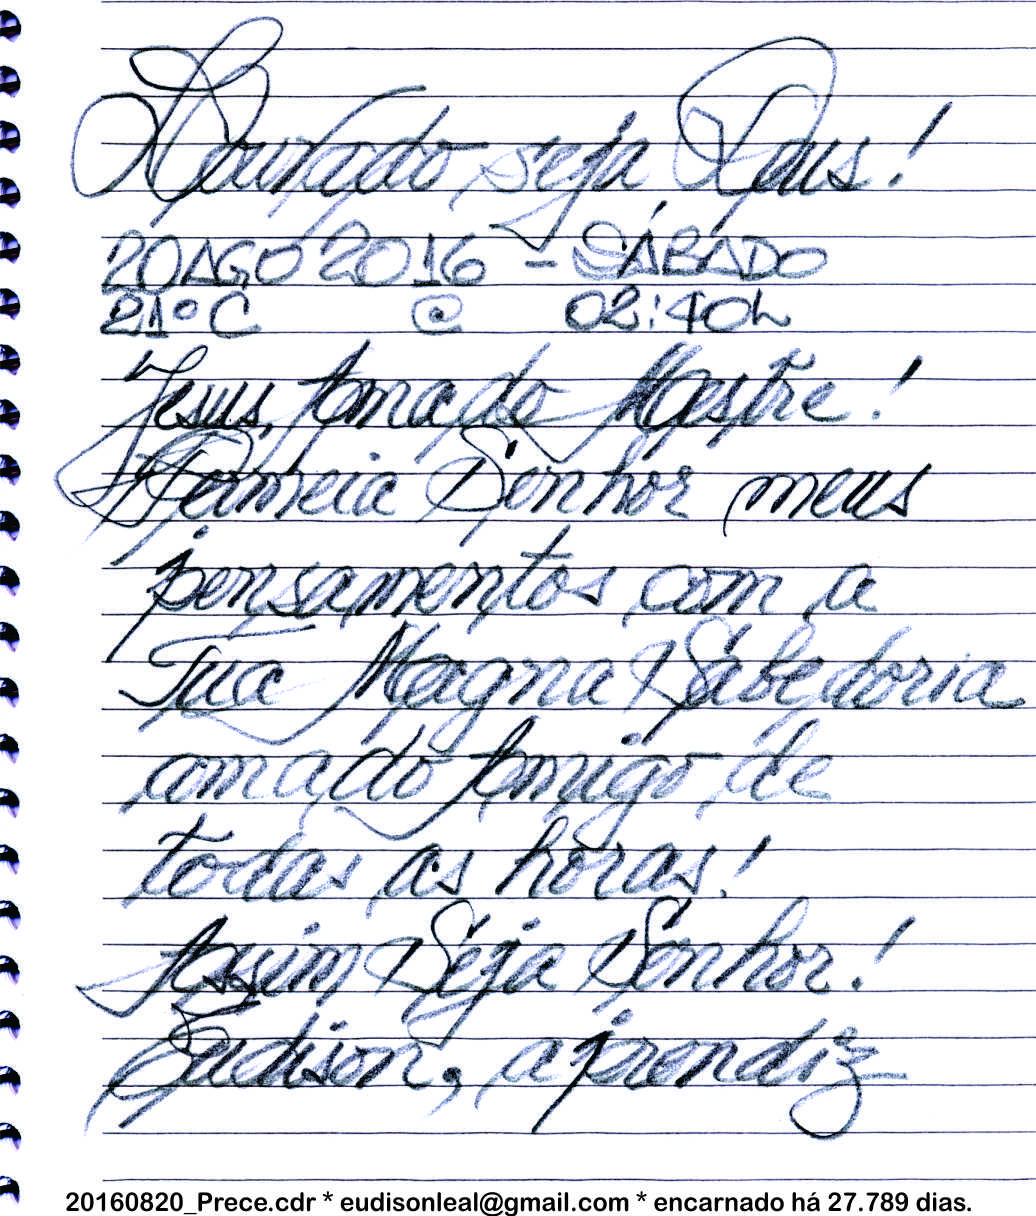 Louvado seja Deus!
20 AGO 2016 - SÁBADO
21°C @ 02:40h
Jesus, Amado Mestre!
Permeia Senhor meus
pensamentos com a
Tua Magna Sabedoria
amado Amigo de
todas as horas!
Assim Seja Senhor!
Eudison, aprendiz
20160820_Prece.cdr * eudisonleal@gmail.com * encarnado há 27.789 dias.